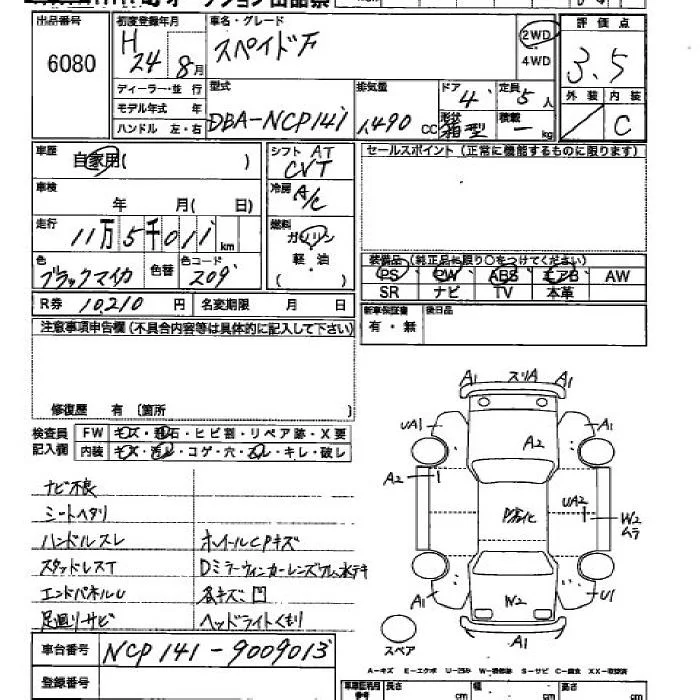 出品番号
6080
初度登録年月
H
24 8月
車名・グレード
スペイド F
2WD
4WD
評価点
3.5
外装 内装
C
ディーラー・並 行
モデル年式 年
ハンドル 左・右
型式
DBA-NCP141
排気量
1,490 CC
ドア 4
形状
箱型
定員 5 人
積載
kg
車歴
自家用( )
シフト AT
CVT
セールスポイント (正常に機能するものに限ります)
車検
年 月( 日)
冷房 A/C
走行
11万5千011km
燃料
ガソリン
軽・油
( )
色
ブラックマイカ
色替
色コード
209
装備品 (純正品に限り○をつけてください)
PS PW ABS エアB AW
SR ナビ TV 本革
R券 10,210 円 名変期限 月 日
新車保証書
有・無
後日品
注意事項申告欄(不具合内容等は具体的に記入して下さい)
修復歴 有 〔箇所 〕
検査員
記入欄
FW キズ・飛石・ヒビ割・リペア跡・X要
内装 キズ・汚レ・コゲ・穴・スレ・キレ・破レ
ナビ不良
シートヘタリ
ハンドルスレ
スタッドレスT
エンドパネルU
足廻リサビ
ホイールCPキズ
Dミラーウィンカーレンズワレ、ホテキ
各キズ、凹
ヘッドライトくもり
A1 スリA A1
UA1
A2
A1
A2
P劣化
UA2
W2
ムラ
A1
W2
U1
A1
スペア
A-キズ E-エクボ U-凹み W-補修跡 S-サビ C-腐食 XX-交換済
車台番号 NCP141-9009013
登録番号
長さ cm
幅 cm
高さ cm